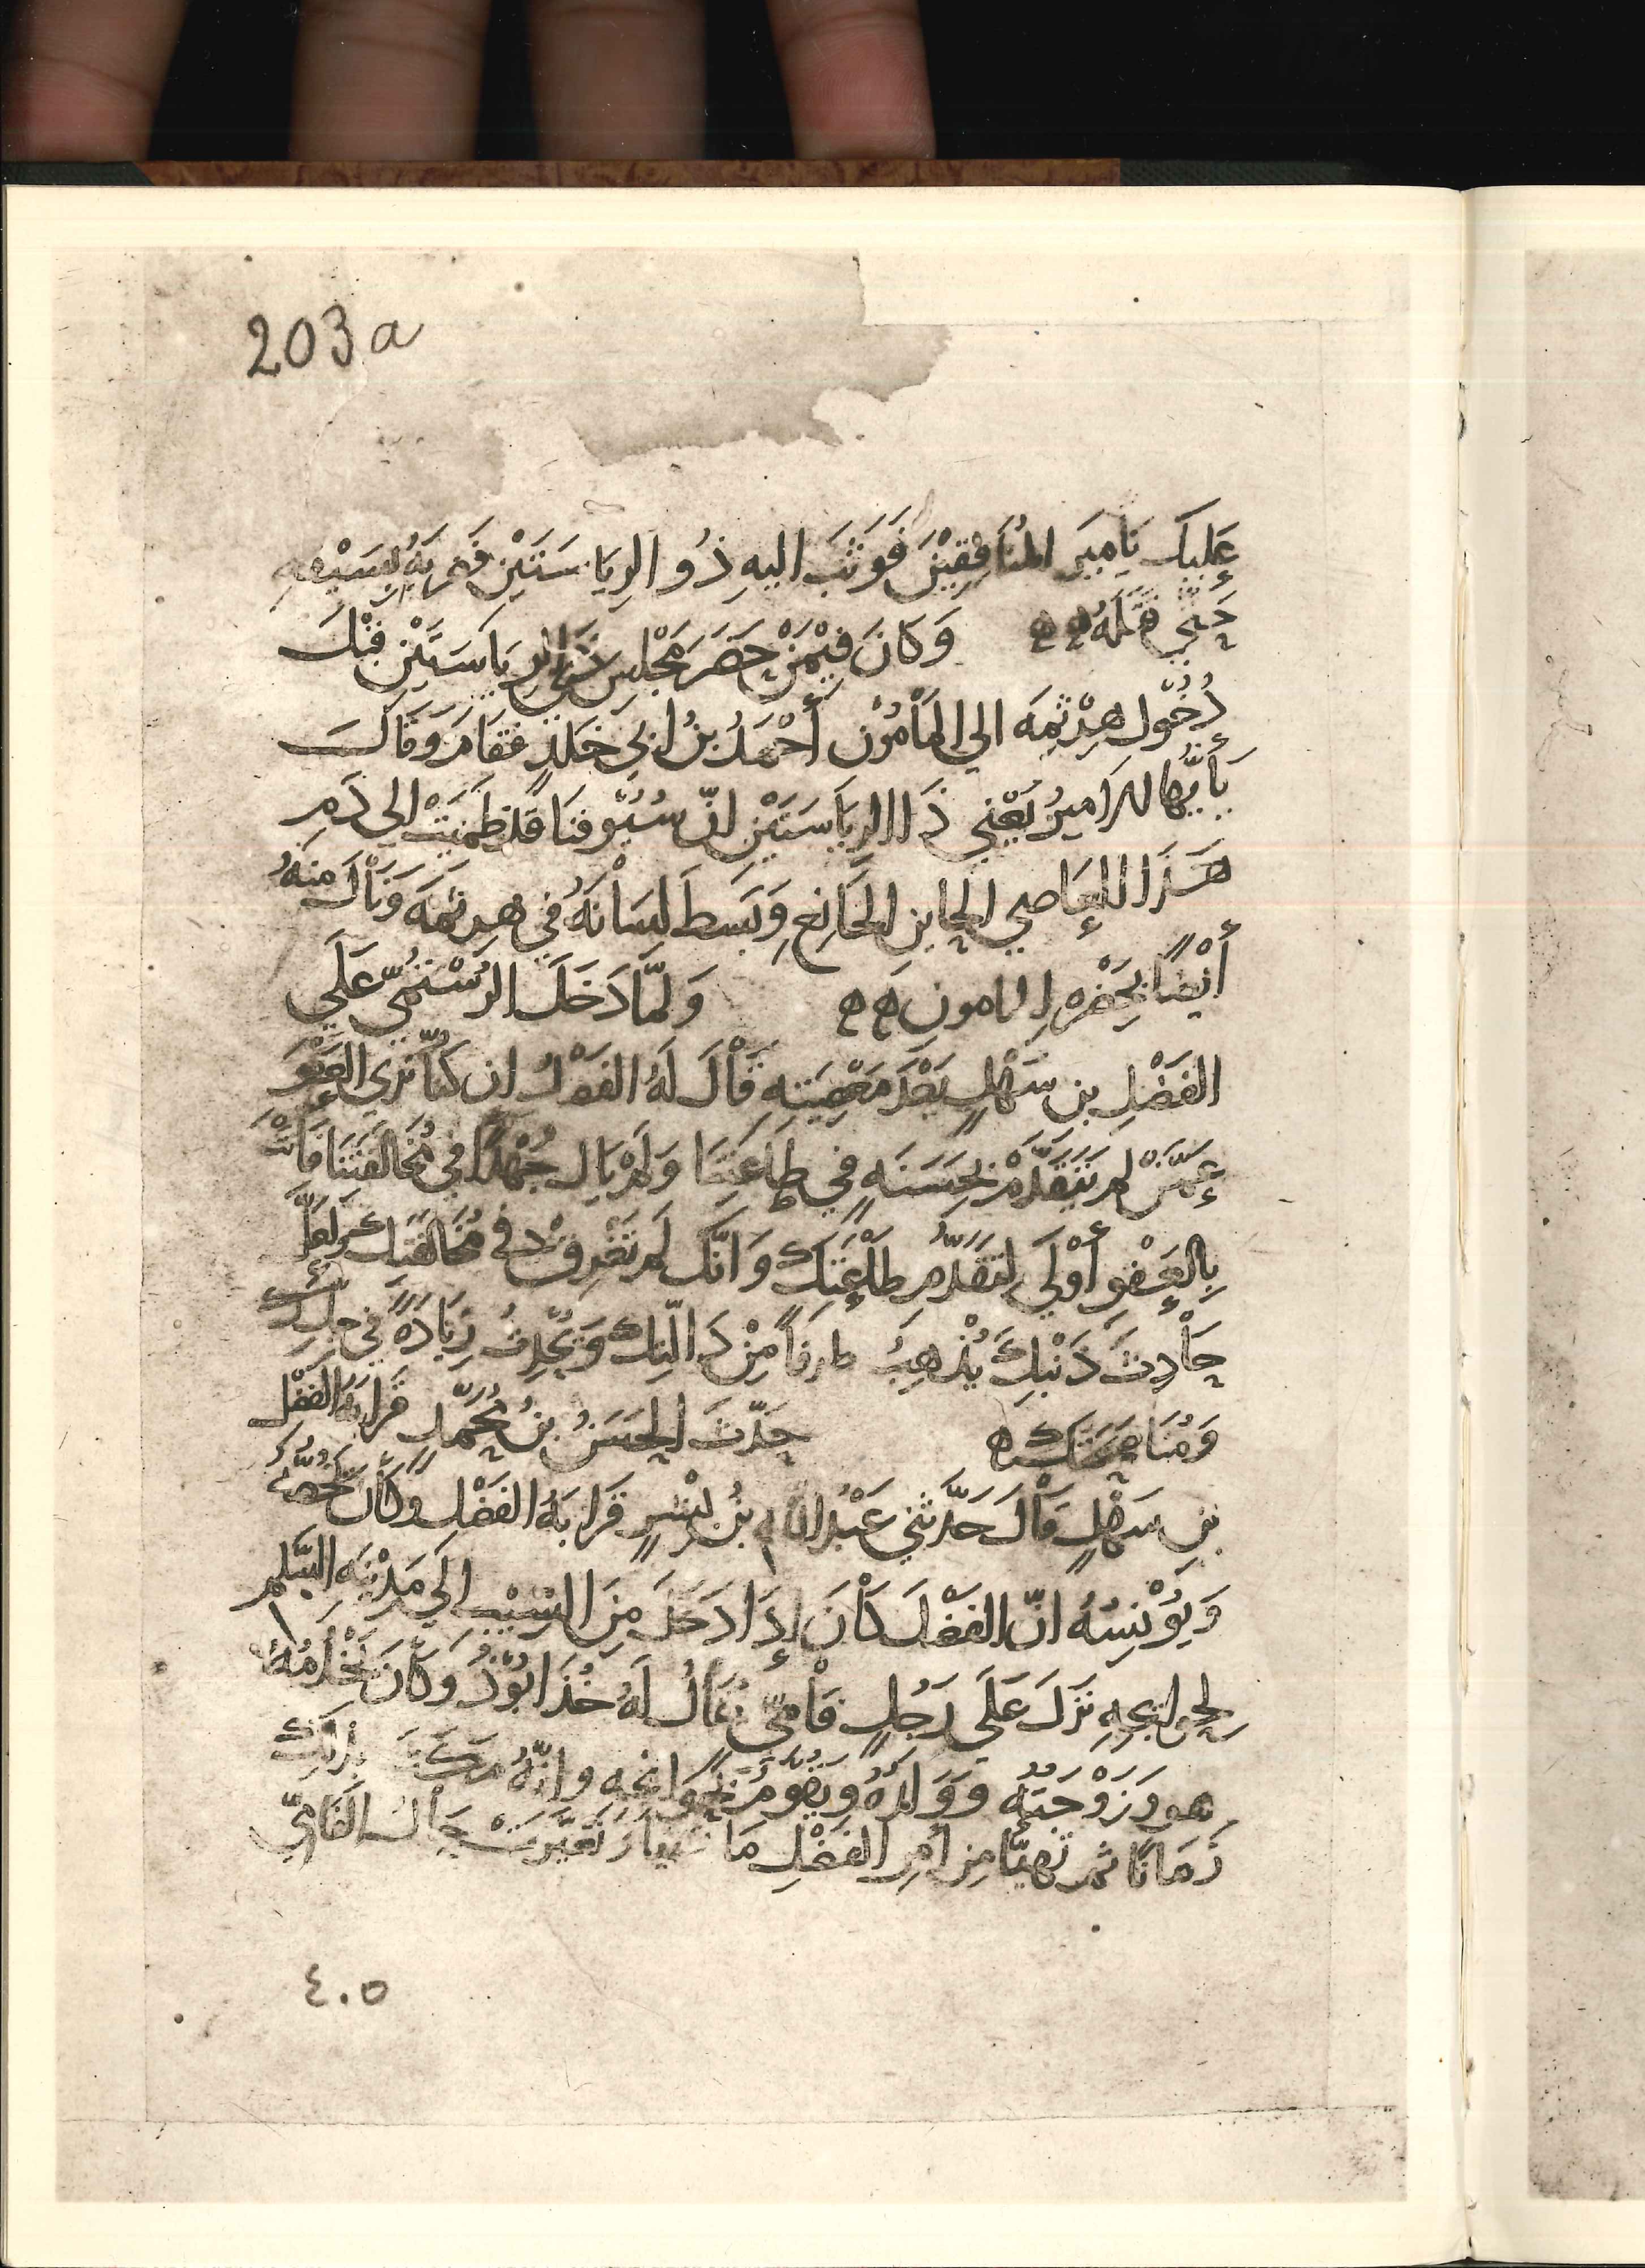 203a
عَلَيكَ يَامِيرَ المُنَافِقِيْنَ فَوَثَبَ اليهِ ذُو الرِيَاسَتَيْنِ فَضَربَهُ بِسَيْفِهِ
حَتّي قَتَلَهُ ه ه وَكَانَ فِيْمَنْ حَضَرَ مَجْلِسَ ذي الرِيَاسَتَيْنِ قبْلَ
دُخُول هِرْثِمَه الي المَأْمُوْن أَحْمَدُ بنُ ابِي خَلَدٍ فَقَامَ وَقَالَ
يَأَيُّهَا الامِيرُ يَعْنِي ذَا الرِيَاسَتَيْنِ انّ سُيُوفنَا قَد ظَمِئَتْ الي دَمِ
هَذَا العَاصِي الخاين الخَالِعِ وَبَسَطَ لِسَانَهُ فِي هرثمَه وَنَالَ مِنهُ
أَيْضًا بِحَضْرهِ المامون ه ه وَلَمّا دَخَلَ الرُسْتُمِيّ عَلَي
الفَضْلِ بن سَهْلٍ بَعْدَ مَعْصِيَتِهِ قَالَ لَهُ الفَضْلُ ان كنّا نَري العَفْوَ
عَمَّنْ لم يَتَقَدَّمْ بِحَسَنَهٍ فِي طاعَتِنَا وَلَمْ يَال جُهْدًا فِي مُخَالَفَتِنَا فَأَنْتَ
بِالعَفْوِ أَوْلَي لِتَقَدُّمِ طَاعَتِكَ وَانَّكَ لَم تُغْرِقْ في مُخَالفَتِكَ وَلَعَلَّ
حَادِثَ ذَنْبِكَ يُذْهِبُ طرفًا مِنْ دَالّتِكَ وَيُحْدِثُ زِيَادَهً فِي جِدِّكَ
وَمُنَاصَحَتِكَ ه حَدّثَ الحَسَنُ بنُ مُحَمّدٍ قَرَابَهُ الفَضْلِ
بنِ سَهْلٍ قَالَ حَدَّثَنِي عَبْدُ اللهِ بنُ بِشْرٍ قَرَابَهُ الفَضْلِ وَكَانَ يَخُصُّهُ
وَيُؤْنِسُهُ انّ الفَضْلَ كَانَ إِذَا دَخَلَ مِنَ السِيْبِ الي مَدِيْنَهِ السَّلمِ
لِحَوَايجِهِ نَزَلَ عَلَي رَجُلٍ فَامِيّ يُقَالُ لَهُ خُذَابُوذ وَكَانَ يَخْدُمُهُ
هو وَزَوْجَتُهُ وَوَلَدُهُ وَيَقُومُ بِحَوَايجِهِ وانّهُ مَكَثَ بِذَلِكَ
زَمَانًا ثم تَهيّا مِن أَمرِ الفَضْلِ مَا تَهيا وَتَغَيَّرَتْ حَالُ الفَامِيّ
٤٠٥